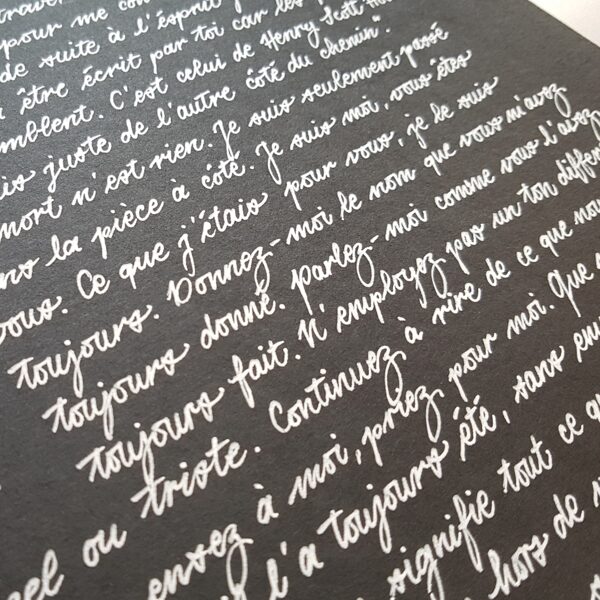 pour me con
de suite à l'esprit
être écrit par toi car les
mblent. C'est celui de Henry Scott Hol
is juste de l'autre côté du chemin."
mort n'est rien. Je suis seulement passé
ns la pièce à côté. Je suis moi, vous êtes
vous. Ce que j'étais pour vous, je le suis
toujours. Donnez-moi le nom que vous m'avez
toujours donné. parlez-moi comme vous l'avez
toujours fait. N'employez pas un ton différen
el ou triste. Continuez à rire de ce que nou
ensez à moi, priez pour moi. Que
l'a toujours été, sans em
signifie tout ce qu
hors de